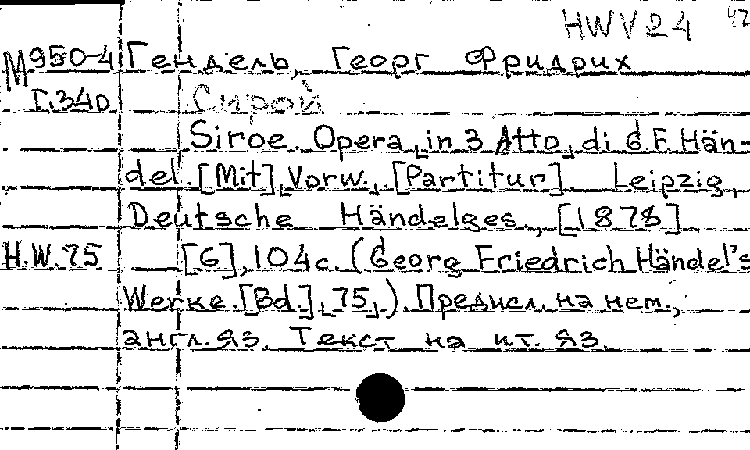 HWV 24 42
М950-4 Гендель, Георг Фридрих
Г.34о Сирой
Siroe. Opera in 3 Atto di G.F. Hän-
del. [Mit] Vorw. [Partitur]. Leipzig,
Deutsche Händelges., [1878]
H.W. 75 [6], 104 с. (Georg Friedrich Händel's
Werke. [Bd.] 75.) Предисл. на нем.,
англ. яз. Текст на ит. яз.